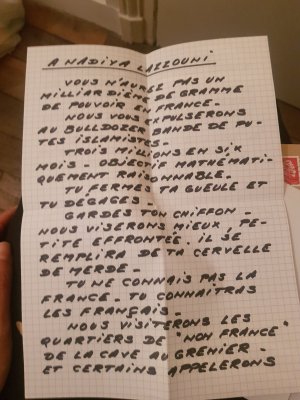 A NADIYA LAZZOUNI
VOUS N'AUREZ PAS UN
MILLIARDIÈME DE GRAMME
DE POUVOIR EN FRANCE -
NOUS VOUS EXPULSERONS
AU BULLDOZER BANDE DE PU-
TES ISLAMISTES -
TROIS MILLIONS EN SIX
MOIS - OBJECTIF MATHÉMATI-
QUEMENT RAISONNABLE -
TU FERMES TA GUEULE ET
TU DÉGAGES -
GARDES TON CHIFFON -
NOUS VISERONS MIEUX, PE-
TITE EFFRONTÉE. IL SE
REMPLIRA DE TA CERVELLE
DE MERDE -
TU NE CONNAIS PAS LA
FRANCE - TU CONNAITRAS
LES FRANÇAIS -
NOUS VISITERONS LES
QUARTIERS DE "NON FRANCE"
DE LA CAVE AU GRENIER -
ET CERTAINS APPELERONS